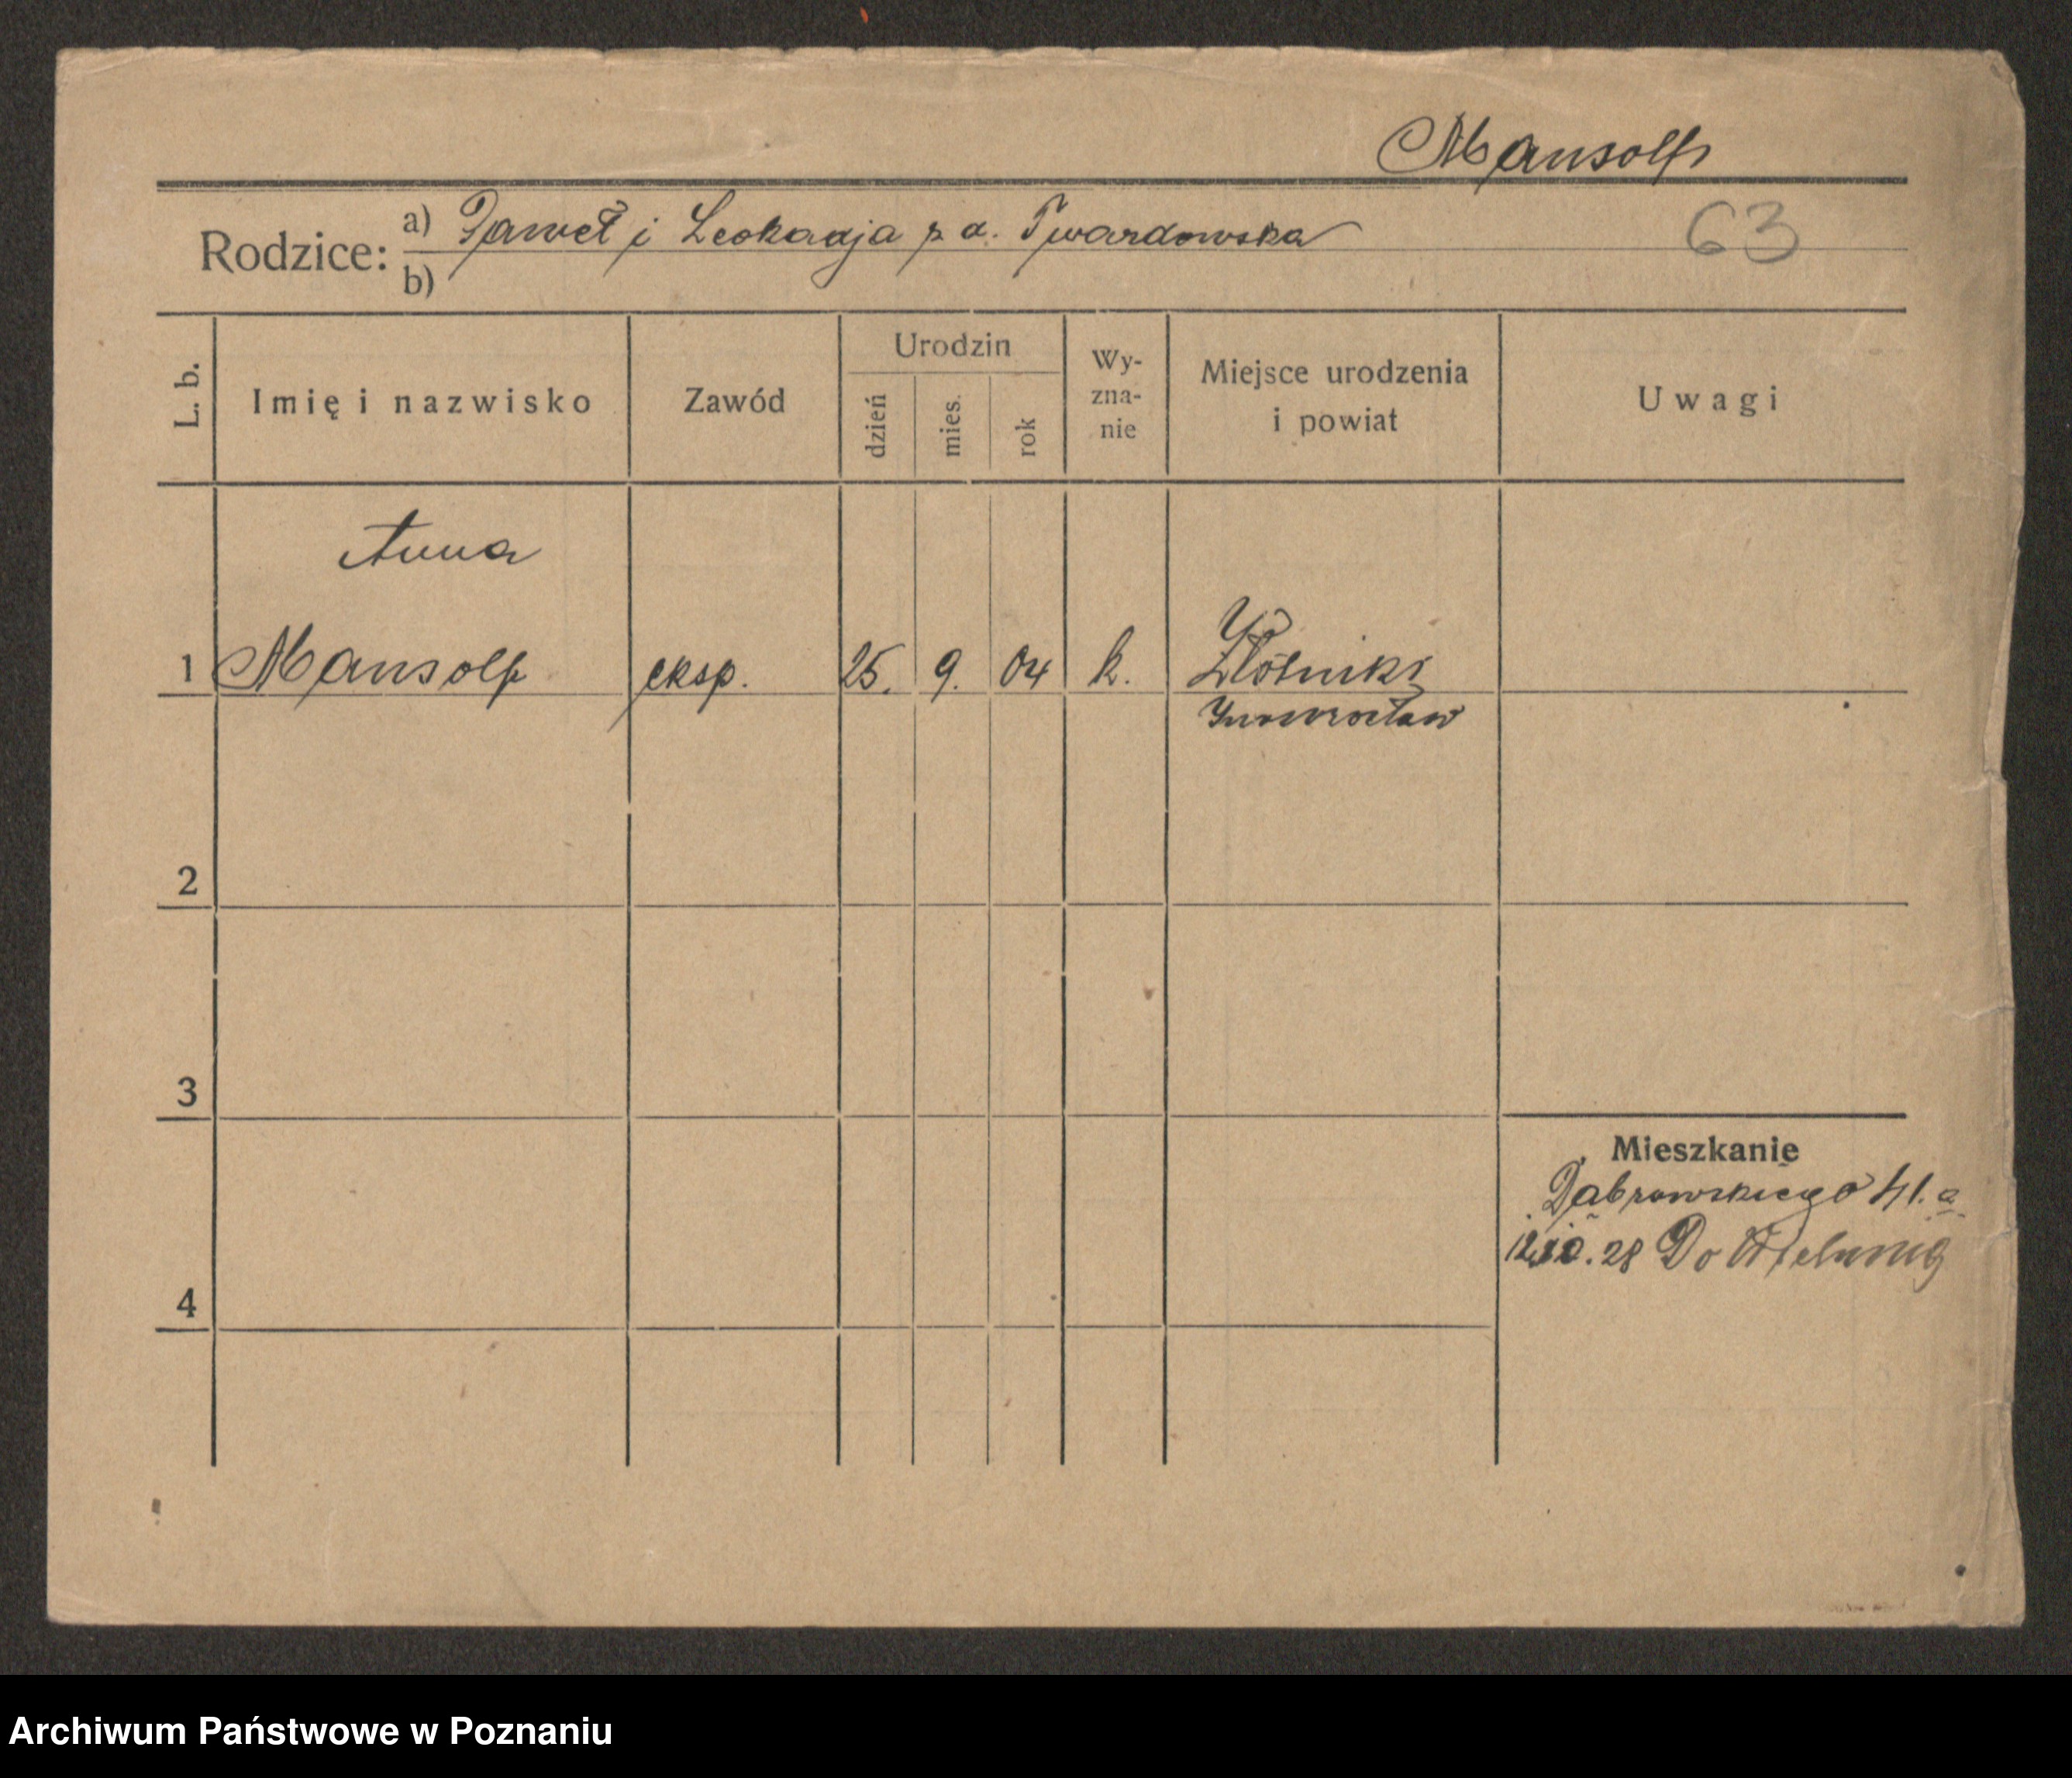 Mansolf
Rodzice: a) Paweł i Leokadja z d. Twardowska
63
b)
L. b.
Imię i nazwisko
Zawód
Urodzin
dzień
mies.
rok
Wy-
zna-
nie
Miejsce urodzenia
i powiat
Uwagi
Anna
1 Mansolf eksp. 25. 9. 04 k. Złotniki
Inowrocław
2
3
Mieszkanie
Dąbrowskiego 41.a
28 Do
4
Archiwum Państwowe w Poznaniu